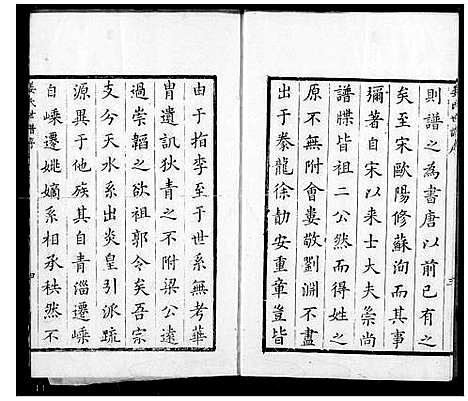 則譜之為書唐以前已有之
矣至宋歐陽修蘇洵而其事
彌著自宋以來士大夫崇尚
譜牒皆祖二公然而得姓之
原不無附會婁敬劉淵不盡
出于豢龍徐勣安重章豈皆
由于指李至于世系無考華
胄遺譏狄青之不附梁公遠
過崇韜之欲祖郭令矣吾宗
支分天水系出炎皇引派疏
源異于他族其自青淄遷嵊
自嵊遷姚嫡系相承秩然不
姜氏世譜序
四
11